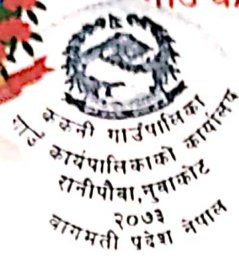 ककनी गाउँपालिका
गाउँ कार्यपालिकाको कार्यालय
रानीपौवा, नुवाकोट
२०७३
वागमती प्रदेश नेपाल